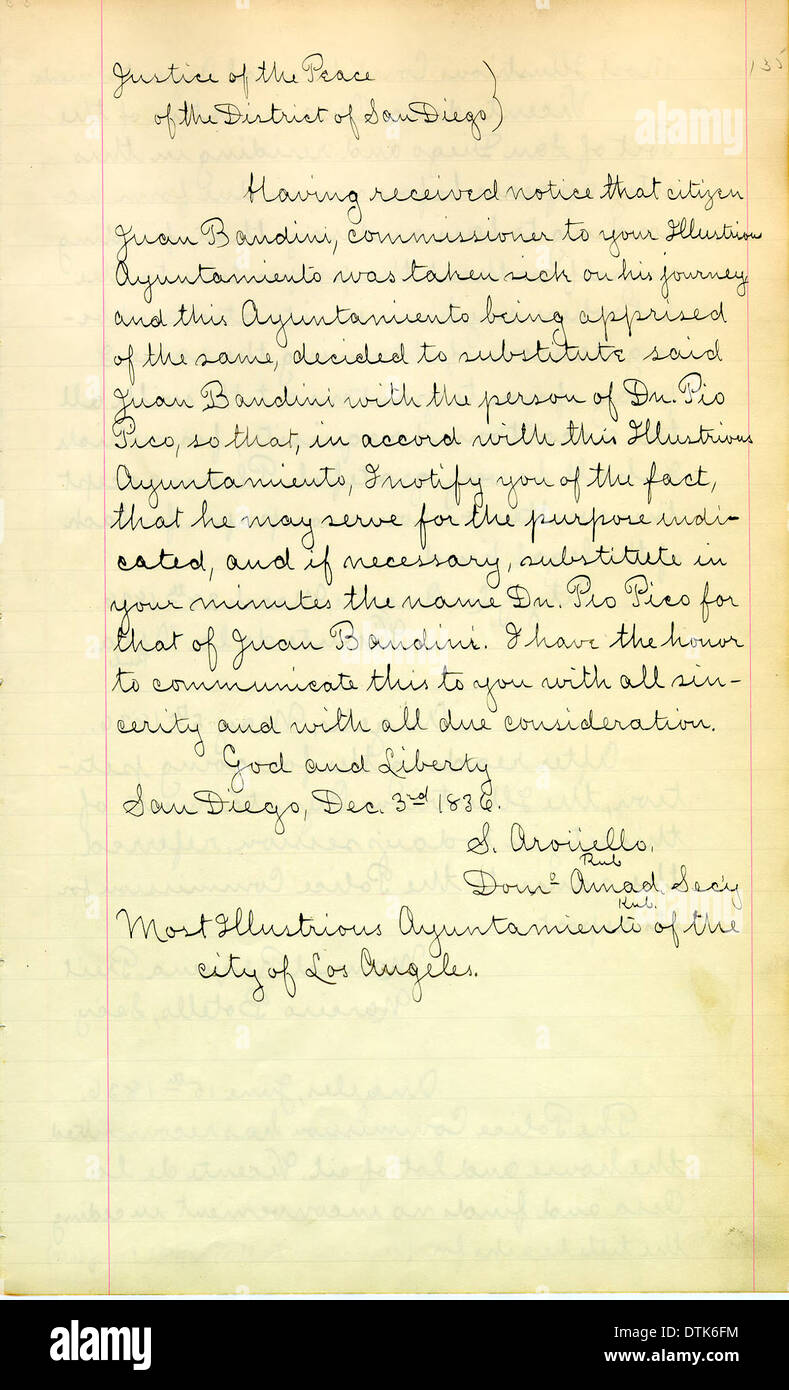 135
Justice of the Peace )
of the District of San Diego )
Having received notice that citizen
Juan Bandini, commissioner to your Illustrious
Ayuntamiento was taken sick on his journey
and this Ayuntamiento being apprised
of the same, decided to substitute said
Juan Bandini with the person of Dn. Pio
Pico, so that, in accord with this Illustrious
Ayuntamiento, I notify you of the fact,
that he may serve for the purpose indi-
cated, and if necessary, substitute in
your minutes the name Dn. Pio Pico for
that of Juan Bandini. I have the honor
to communicate this to you with all sin-
cerity and with all due consideration.
God and Liberty
San Diego, Dec. 3rd 1836.
S. Argüello,
Rub
Domo Amad. Secy
Rub.
Most Illustrious Ayuntamiento of the
city of Los Angeles.
alamy
alamy
alamy
Image ID: DTK6FM
www.alamy.com